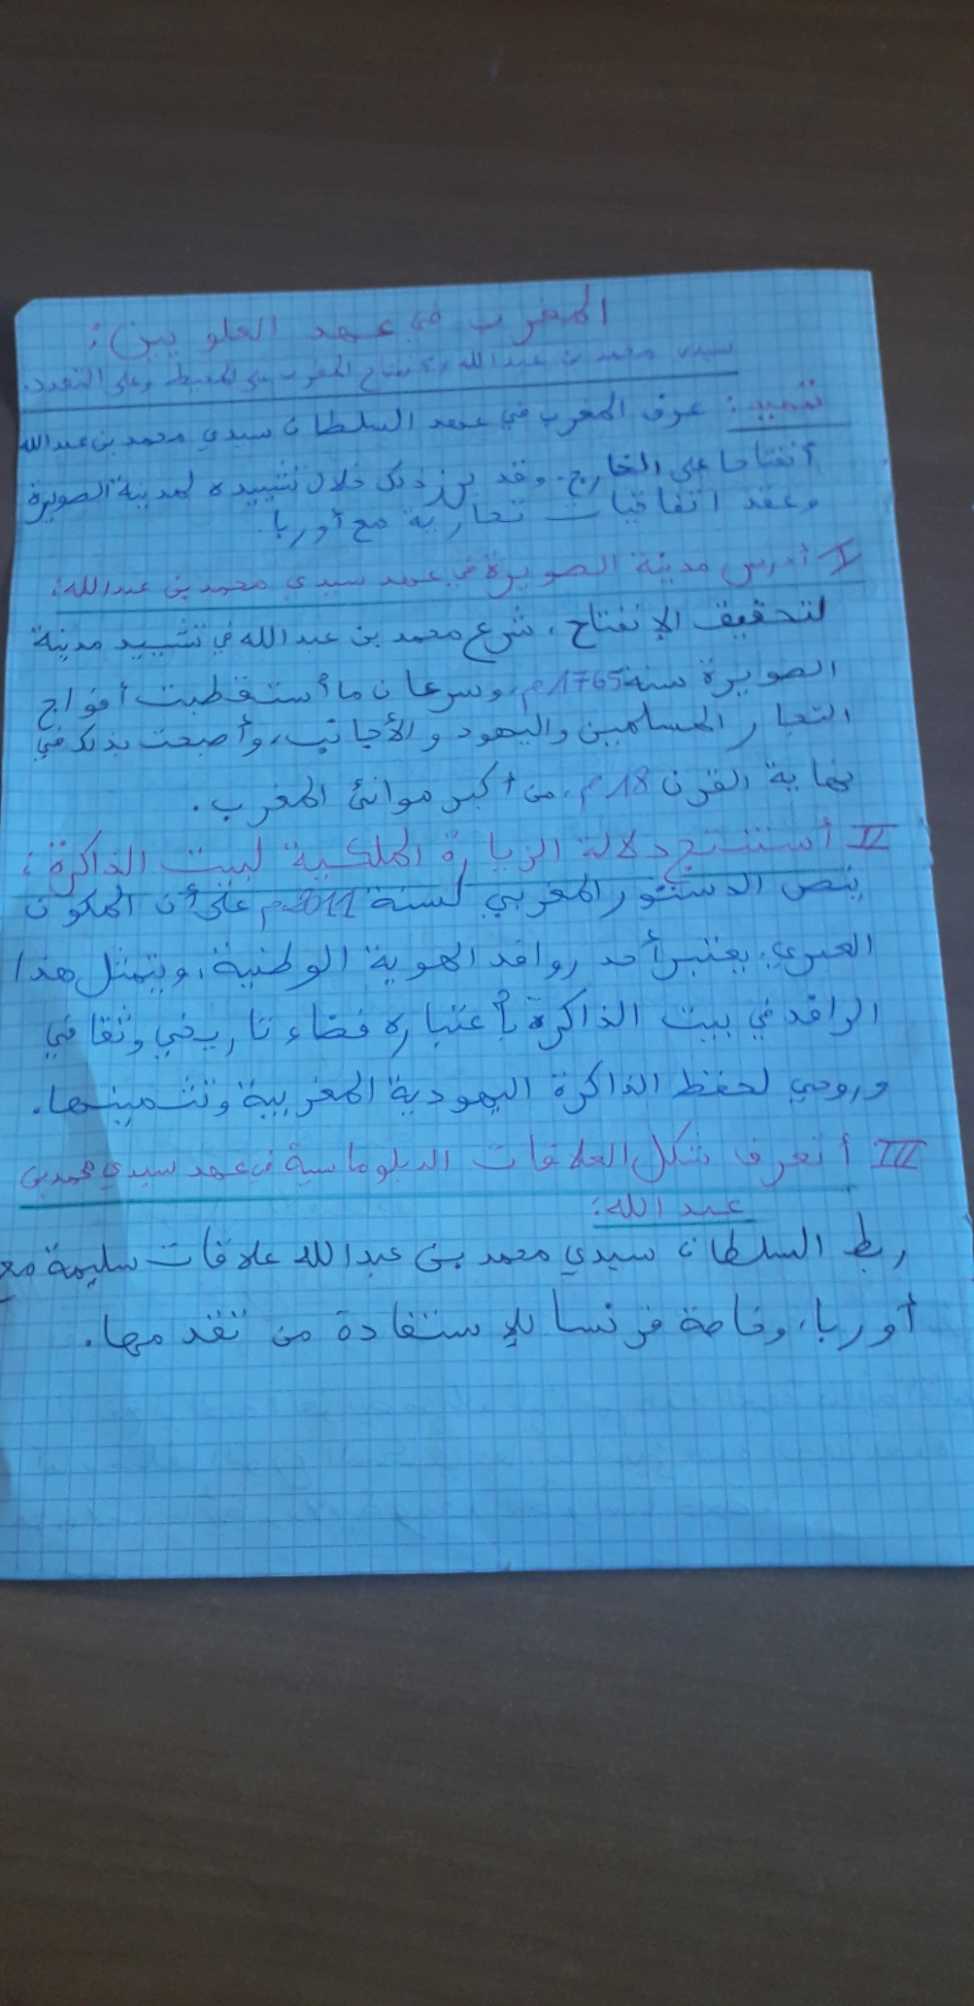 المغرب في عهد العلويين:
سيدي محمد بن عبد الله وانفتاح المغرب على المحيط وعلى التعدد.
تمهيد: عرف المغرب في عهد السلطان سيدي محمد بن عبد الله
أنفتاحا على الخارج. وقد برز ذلك خلال تشييده لمدينة الصويرة
وعقد اتفاقيات تجارية مع أوربا.
I أدرس مدينة الصويرة في عهد سيدي محمد بن عبد الله:
لتحقيق الإنفتاح، شرع محمد بن عبد الله في تشييد مدينة
الصويرة سنة 1765م، وسرعان ما أستقطبت أفواج
التجار المسلمين واليهود والأجانب، وأصبحت بذلك في
نهاية القرن 18م، من أكبر موانئ المغرب.
II أستنتج دلالة الزيارة الملكية لبيت الذاكرة:
ينص الدستور المغربي لسنة 2011م على أن المكون
العبري، يعتبر أحد روافد الهوية الوطنية، ويتمثل هذا
الرافد في بيت الذاكرة بأعتباره فضاء تاريخي وثقافي
وروحي لحفظ الذاكرة اليهودية المغربية وتثمينها.
III أتعرف شكل العلاقات الدبلوماسية في عهد سيدي محمد بن
عبد الله:
ربط السلطان سيدي محمد بن عبد الله علاقات سليمة مع
أوربا، وخاصة فرنسا للإستفادة من تقدمها.